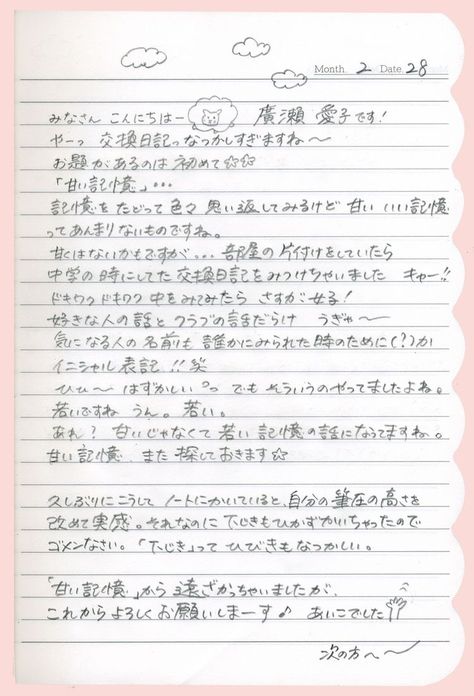 Month. 2 Date. 28
みなさん こんにちはー 廣瀬 愛子です!
やーっ 交換日記っなつかしすぎますね〜
お題があるのは初めて☆☆
「甘い記憶」…
記憶をたどって色々思い返してみるけど 甘い いい記憶
ってあんまりないものですね。
甘くはないかもですが… 部屋の片付けをしていたら
中学の時にしてた交換日記をみつけちゃいました キャー!!
ドキワク ドキワク 中をみてみたら さすが女子!
好きな人の話とクラブの話だらけ うぎゃ〜
気になる人の名前も誰かにみられた時のために(?)か
イニシャル表記!!笑
ひひ〜 はずかしい でも そういうのやってましたよね。
若いですね うん。若い。
あれ? 甘いじゃなくて若い記憶の話になってますね。
甘い記憶、また探しておきます☆
久しぶりにこうして ノートにかいていると、自分の筆圧の高さを
改めて実感。それなのに下じきもひかずかいちゃったので
ゴメンなさい。「下じき」って ひびきもなつかしい。
「甘い記憶」から遠ざかっちゃいましたが、
これからよろしくお願いしまーす♪ あいこでした
次の方へ〜